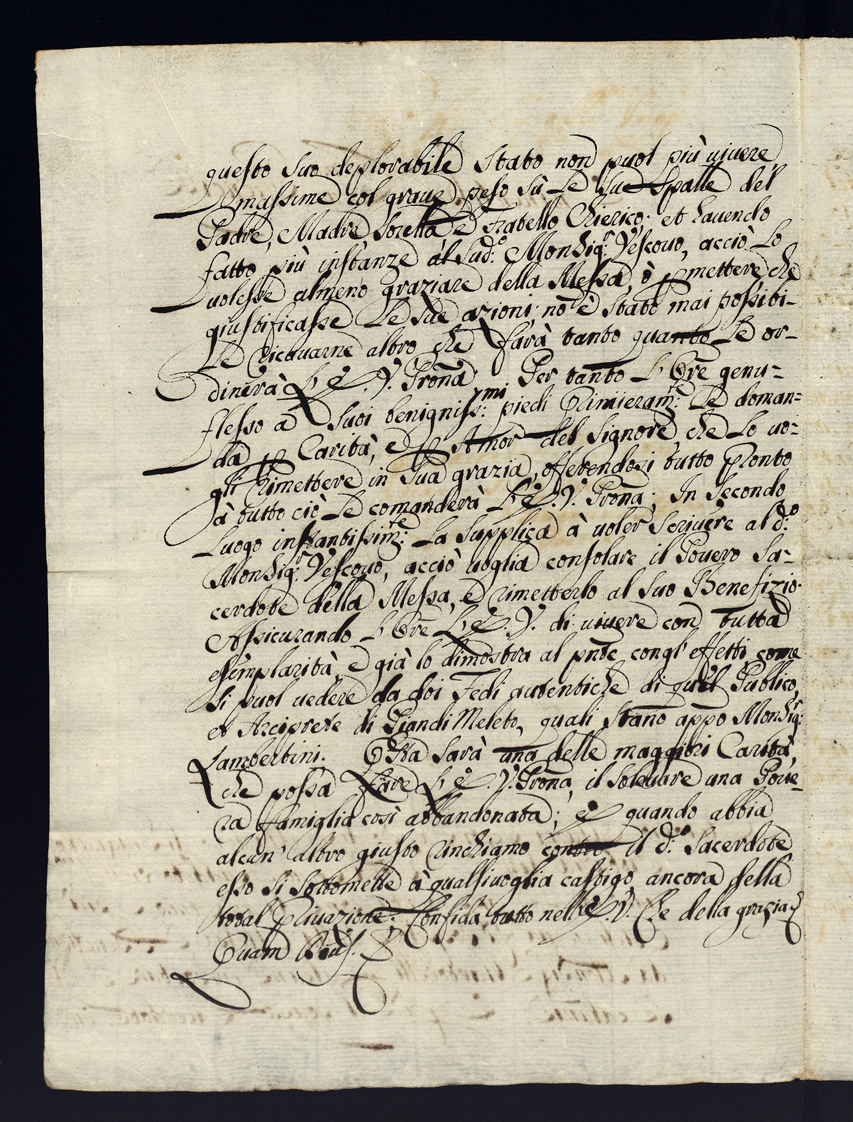 questo suo deplorabile stato non puol più uiuere
massime col graue peso sù le sue spalle del
Padre, Madre sorella e Fratello Chierico: et hauendo
fatto più instanze al sud.º Monsig.r Vescouo, acciò lo
uolesse almeno graziare della Messa, ò pmettere che
giustificasse le sue azioni, nō è stato mai possibi-
le ricauarne altro che farà tanto quanto le or-
dinerà L'E. V. Prona Per tanto l'Ōre genu-
flesso a suoi benigniss:mi piedi Primieram:te le doman-
da p Carità, e p Amor del Signore che lo uo-
gli rimettere in sua grazia, offerendosi tutto pronto
à tutto ciò le comanderà L'E. V. Prona; In secondo
luogo instantissim:te La supplica à uoler scriuere al d.º
Monsig.r Vescouo, acciò uoglia consolare il Pouero Sa-
cerdote della Messa, e rimetterlo al suo Benefizio
Assicurando l'Ōre L'E. V. di uiuere con tutta
esemplarità, e già lo dimostra al pnte congl' effetti come
si puol uedere da doi Fedi autentiche di quel Publico,
et Arciprete di Giandi Meleto, quali stano appo Monsig.r
Lambertini. Q̄sta sarà una delle maggiori Carità
che possa fare L'E. V. Prona, il soleuare una Poue-
ra famiglia così abbandonata; e quando abbia
alcun' altro giusto richiamo contro il d.º Sacerdote
esso si sottomette à qualsiuoglia castigo ancora della
total priuazione. Confida tutto nell'E. V. Che della grazia
Quam Deus.